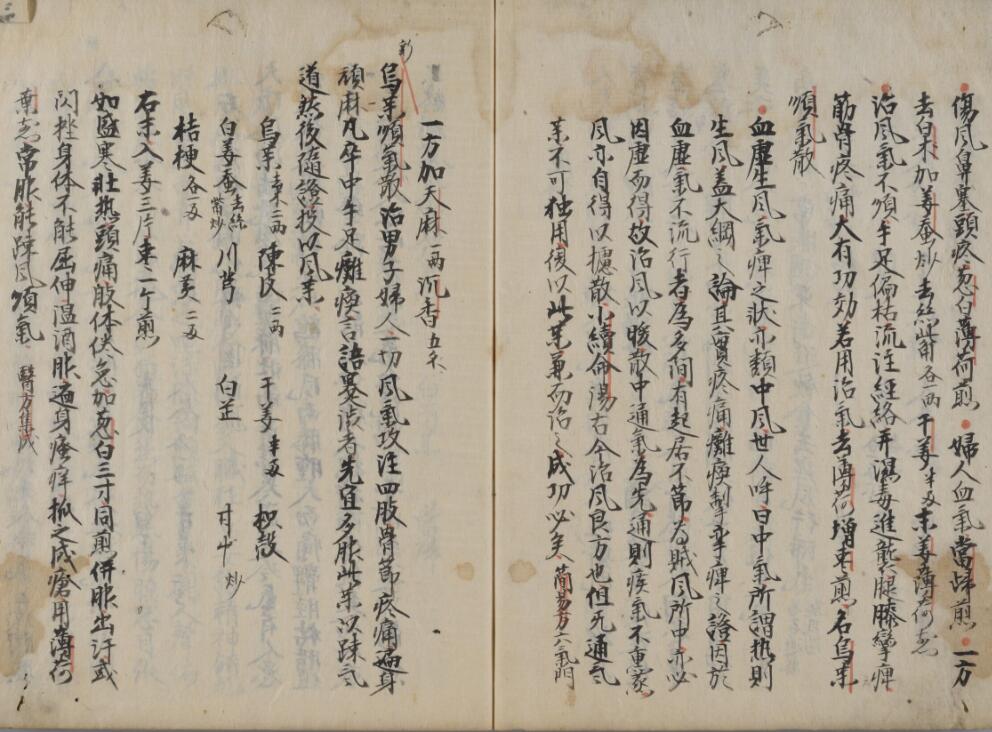 傷風鼻塞頭疼葱白薄荷煎 婦人血氣當歸煎 一方
去白朮加姜蚕炒去絲觜各一両 干姜半両 末姜薄荷煎
治風氣不順手足偏枯流注經絡并濕毒進襲腿膝攣痺
筋骨疼痛大有功効若用治氣去薄荷增枣煎 名烏薬
順氣散
血虛生風氣痺之狀亦類中風世人呼曰中氣所謂熱則
生風盖大綱之論且實疼痛癱瘓掣牽痺之證因於
血虛氣不流行者為多間有起居不節為賊風所中亦必
因虛而得故治風以暖散中通氣為先通則疾氣不重寒
風亦自得以攄散小續命湯古今治風良方也但无通氣
薬不可独用復以此薬兼而治之成功必矣 簡易方六氣門
一方加天麻一両沉香五
烏薬順氣散治男子婦人一切風氣攻注四肢骨節疼痛遍身
頑麻凡卒中手足癱瘓言語蹇渋者先宜多服此薬以踈氣
道然後隨證投以風薬
烏薬去木二両 陳皮二両 干姜半両 枳殻
白姜蚕去絲觜炒 川芎 白芷 甘艸炒
桔梗各一両 麻黄二両
右末入姜三片枣一ケ煎
如盛寒壮熱頭痛肢体倦怠加葱白三寸同煎併服出汗或
閃挫身体不能屈伸温酒服遍身瘙痒抓之成瘡用薄荷
煎 常服能踈風順氣 醫方集成